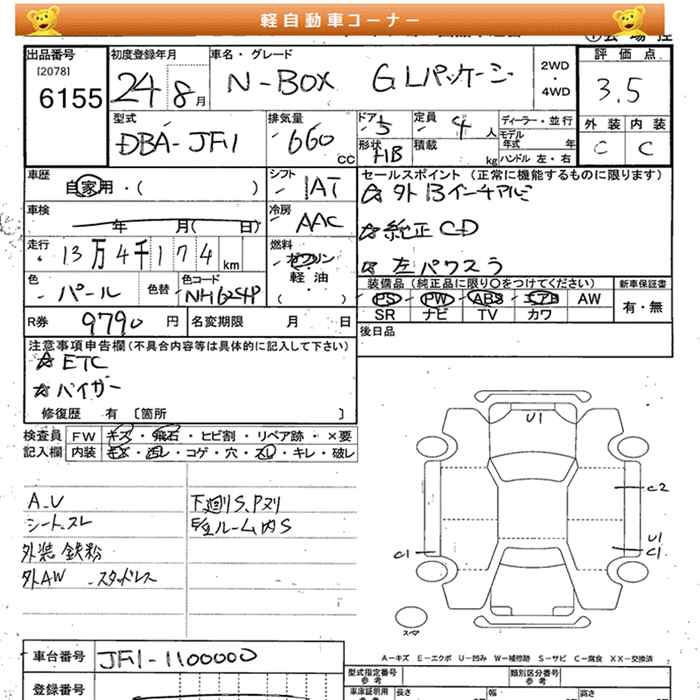 軽自動車コーナー
出品番号
[2078]
6155
初度登録年月
24 8月
車名・グレード
N-BOX GLパッケージ
2WD
・
4WD
評価点
3.5
外装 内装
C C
型式
DBA-JF1
排気量
660
CC
ドア
5
定員
4人
形状
HB
積載
kg
ディーラー・並行
モデル年式 年
ハンドル 左・右
車歴
自家用・( )
シフト
IAT
セールスポイント (正常に機能するものに限ります)
☆外13インチアルミ
☆純正CD
☆左パワスラ
車検
年 月( 日)
冷房
AAC
走行
13万4千174km
燃料
ガソリン
軽・油
( )
色
パール
色替
色コード
NH624P
装備品 (純正品に限り〇をつけてください)
PS PW ABS エアB AW
SR ナビ TV カワ
新車保証書
有・無
R券
9790円
名変期限 月 日
後日品
注意事項申告欄(不具合内容等は具体的に記入して下さい)
☆ETC
☆バイザー
修復歴 有 〔箇所 〕
検査員
記入欄
FW キズ・飛石・ヒビ割・リペア跡・×要
内装 キズ・汚レ・コゲ・穴・スレ・キレ・破レ
A.U
シートスレ
外装 鉄粉
外AW スタッドレス
下廻りS、Pヌリ
ルーム内S
U1
C2
U1
C1
C1
スペア
A－キズ E－エクボ U－凹み W－補修跡 S－サビ C－腐食 XX－交換済
車台番号
JF1-1100000
登録番号
型式指定番号
参考
類別区分番号
参考
車庫証明用
長さ
幅
高さ